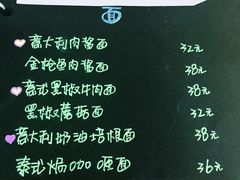 面
意大利肉酱面 32元
金枪鱼肉酱面 38元
意式黑椒牛肉面 38元
黑椒蘑菇面 32元
意大利奶油培根面 38元
泰式焗 面 36元